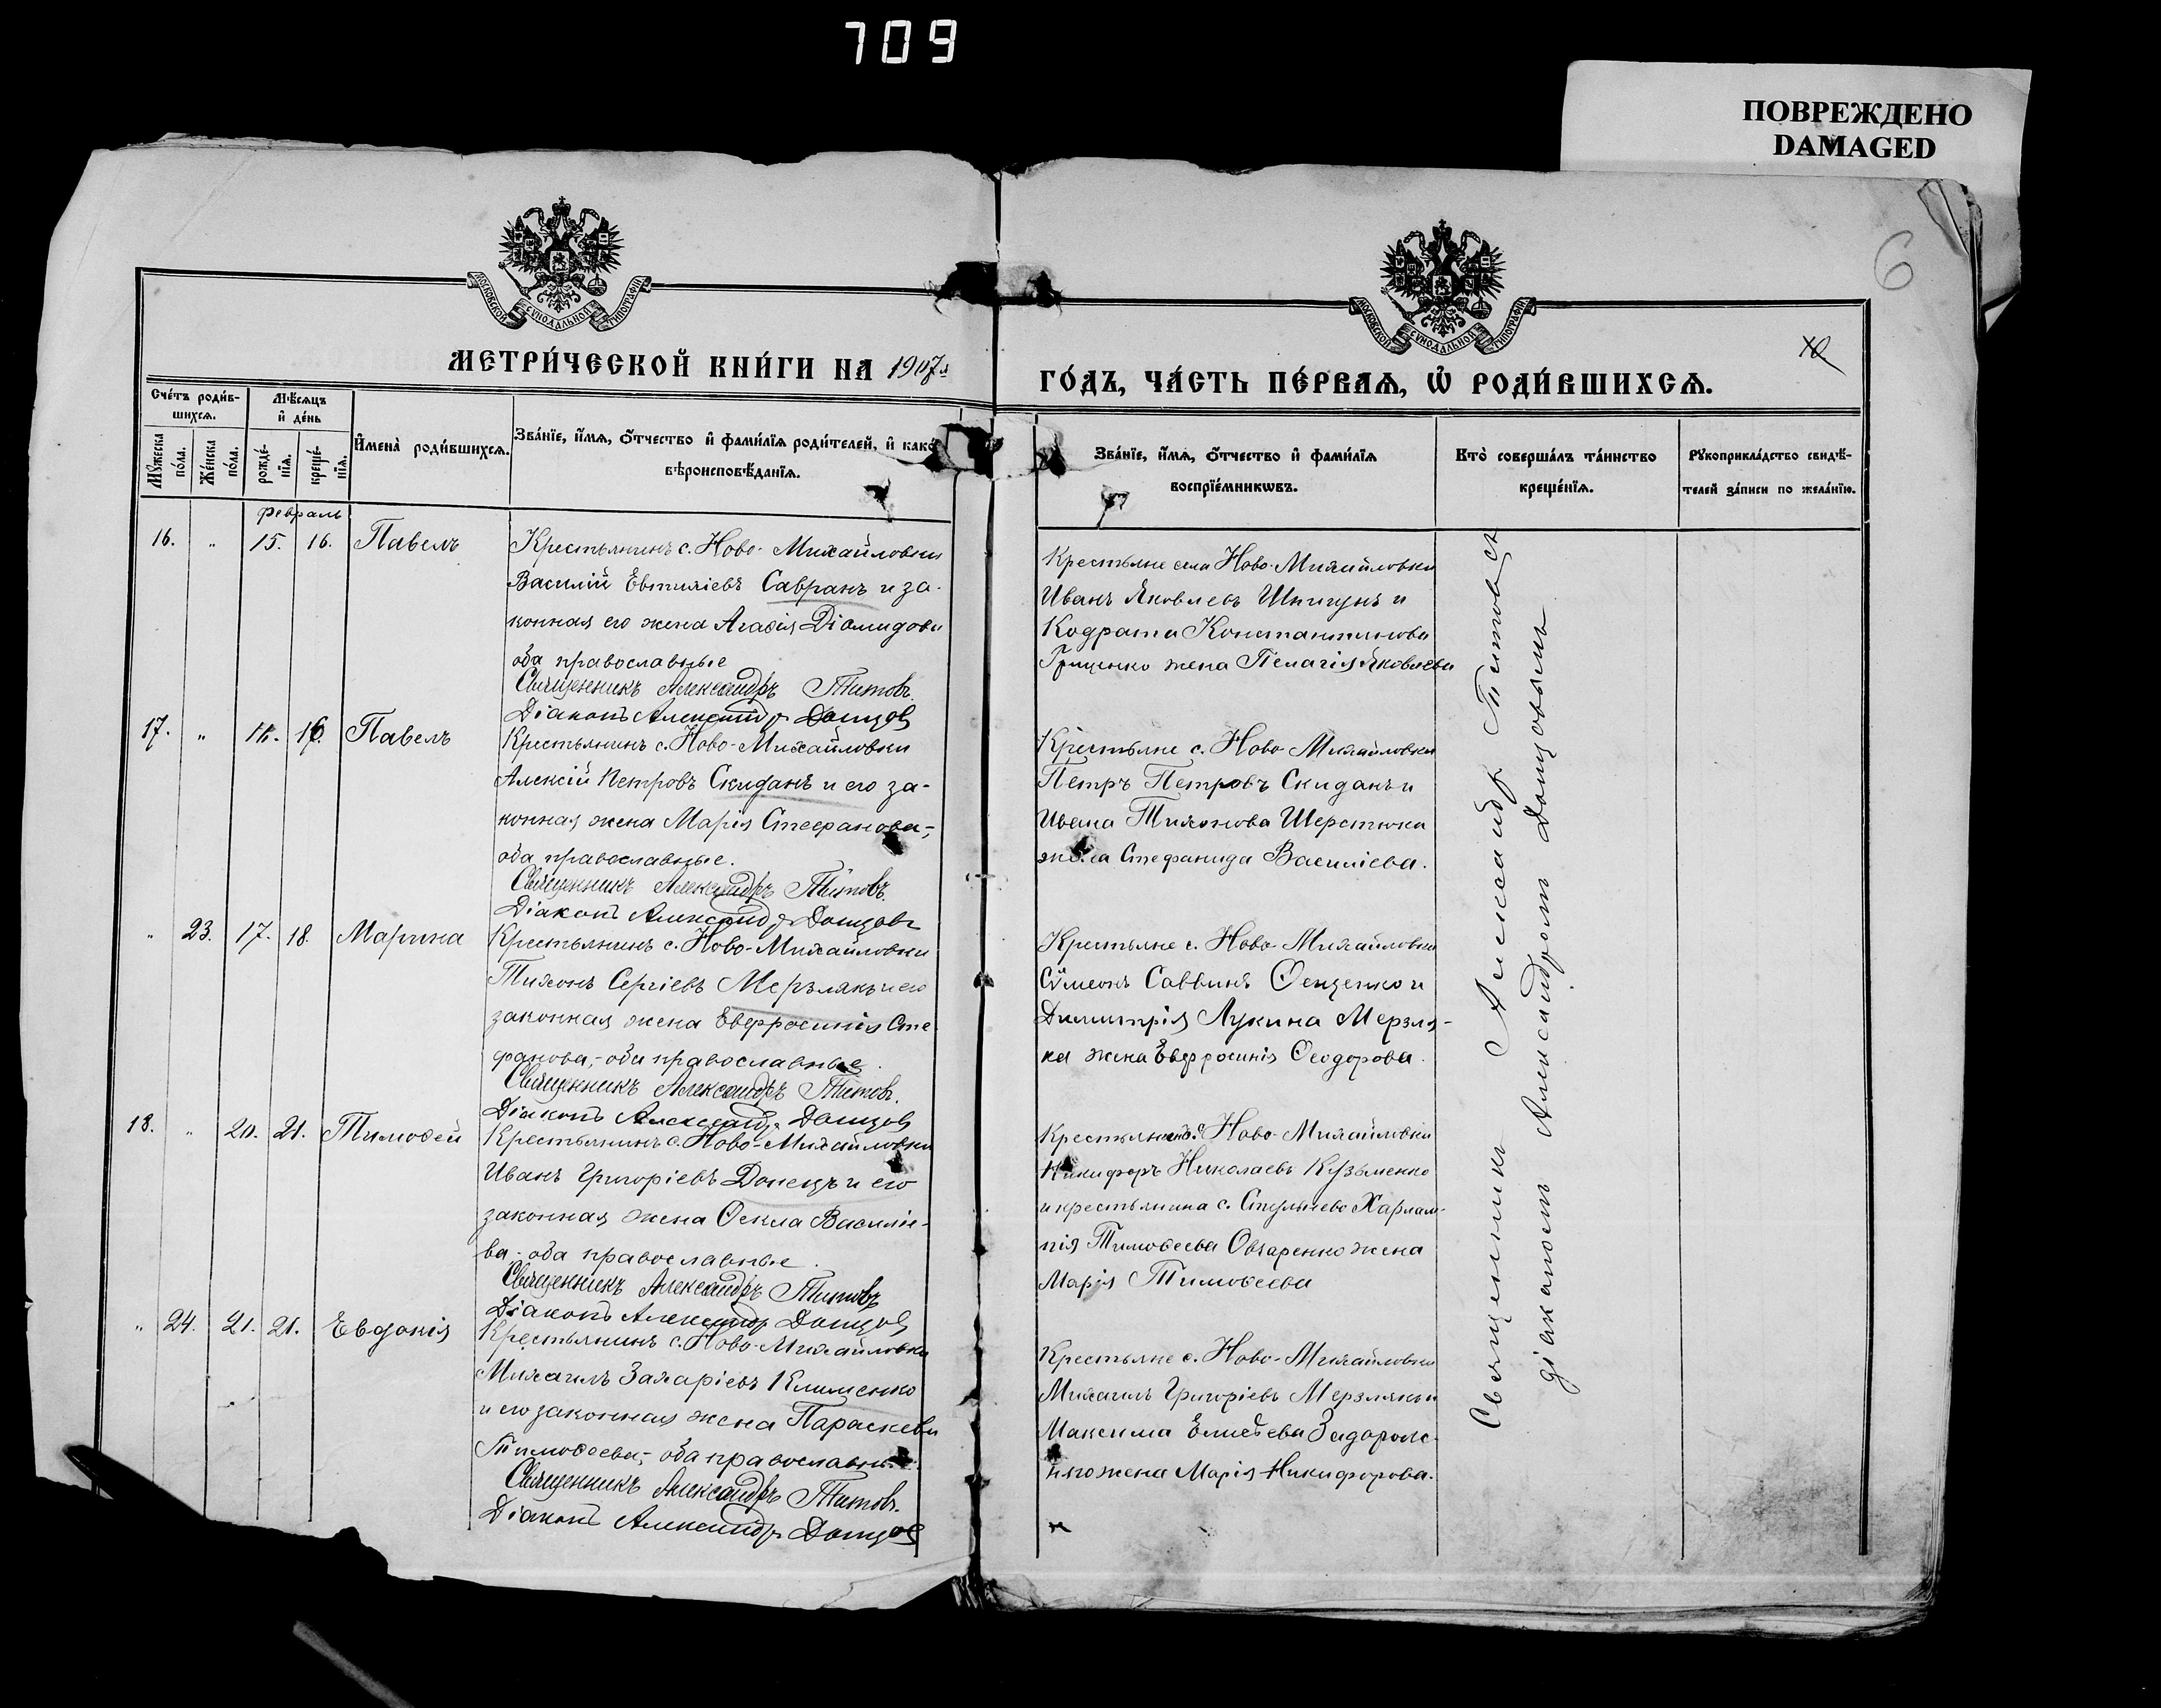 709
ПОВРЕЖДЕНО
DAMAGED
6
МОСКОВСКОЙ СѴНОДАЛЬНОЙ ТИПОГРАФІИ
МОСКОВСКОЙ СѴНОДАЛЬНОЙ ТИПОГРАФІИ
МЕТРИ́ЧЕСКОЙ КНИ́ГИ НА 1907й
ГО́ДЪ, ЧА́СТЬ ПЕ́РВАѦ, Ѡ҆ РОДИ́ВШИХСѦ.
10
Сче́тъ роди́в-
шихсѧ.
Мѣ́сѧцъ
и҆ де́нь
Мꙋ́жеска
по́ла.
Же́нска
по́ла.
рожде́-
нїѧ.
креще́-
нїѧ.
И҆мена̀ роди́вшихсѧ.
Зва́нїе, и҆́мѧ, ѻ҆́тчество и҆ фами́лїѧ роди́телей, и҆ како́
вѣроисповѣ́данїѧ.
Зва́нїе, и҆́мѧ, ѻ҆́тчество и҆ фами́лїѧ
воспрїе́мникѡвъ.
Кто̀ соверша́лъ та́инство
креще́нїѧ.
Рꙋкоприкла́дство свидѣ́-
телей за́писи по жела́нїю.
Февраль
16. " 15. 16. Павелъ
Крестьянинъ с. Ново-Михайловки
Василій Евтихіевъ Савранъ и за-
конная его жена Агафія Діомидова
оба православные
Священникъ Александръ Титовъ.
Діаконъ Александръ Донцовъ
Крестьяне села Ново-Михайловки
Иванъ Яковлевъ Шпигунъ и
Кодрата Константинова
Гриценко жена Пелагія Яковлева
17. " 16. Павелъ
Крестьянинъ с. Ново-Михайловки
Алексій Петровъ Скиданъ и его за-
конная жена Марія Стефанова,-
оба православные.
Священникъ Александръ Титовъ.
Діаконъ Александръ Донцовъ
Крестьяне с. Ново-Михайловки
Петръ Петровъ Скиданъ и
Ивана Тихонова Шерстюка
жена Стефанида Василіева.
" 23. 17. 18. Марина
Крестьянинъ с. Ново-Михайловки
Тихонъ Сергіевъ Мерзлякъ и его
законная жена Евфросинія Сте-
фанова,- оба православные.
Священникъ Александръ Титовъ.
Діаконъ Александръ Донцовъ
Крестьяне с. Ново-Михайловки
Сѷмеонъ Саввинъ Ѳещенко и
Димитрія Лукина Мерзля-
ка жена Евфросинія Ѳеодорова.
18. " 20. 21. Тимоѳей
Крестьянинъ с. Ново-Михайловки
Иванъ Григоріевъ Донецъ и его
законная жена Ѳекла Василіе-
ва- оба православные.
Священникъ Александръ Титовъ
Діаконъ Александръ Донцовъ
Крестьянинъ с. Ново-Михайловки
Никифоръ Николаевъ Кузьменко
и крестьянина с. Харлам-
пія Тимоѳеева Овчаренко жена
Марія Тимоѳеева
" 24. 21. 21. Евдокія
Крестьянинъ с. Ново-Михайловки
Михаилъ Захаріевъ Клименко
и его законная жена Параскева
Тимоѳеева,- оба православны
Священникъ Александръ Титовъ.
Діаконъ Александръ Донцовъ
Крестьяне с. Ново-Михайловки
Михаилъ Григоріевъ Мерзлякъ и
Максима Елисѣева
жена Марія Никифорова.
Священникъ Александръ Титовъ съ
діакономъ Александромъ Донцовымъ